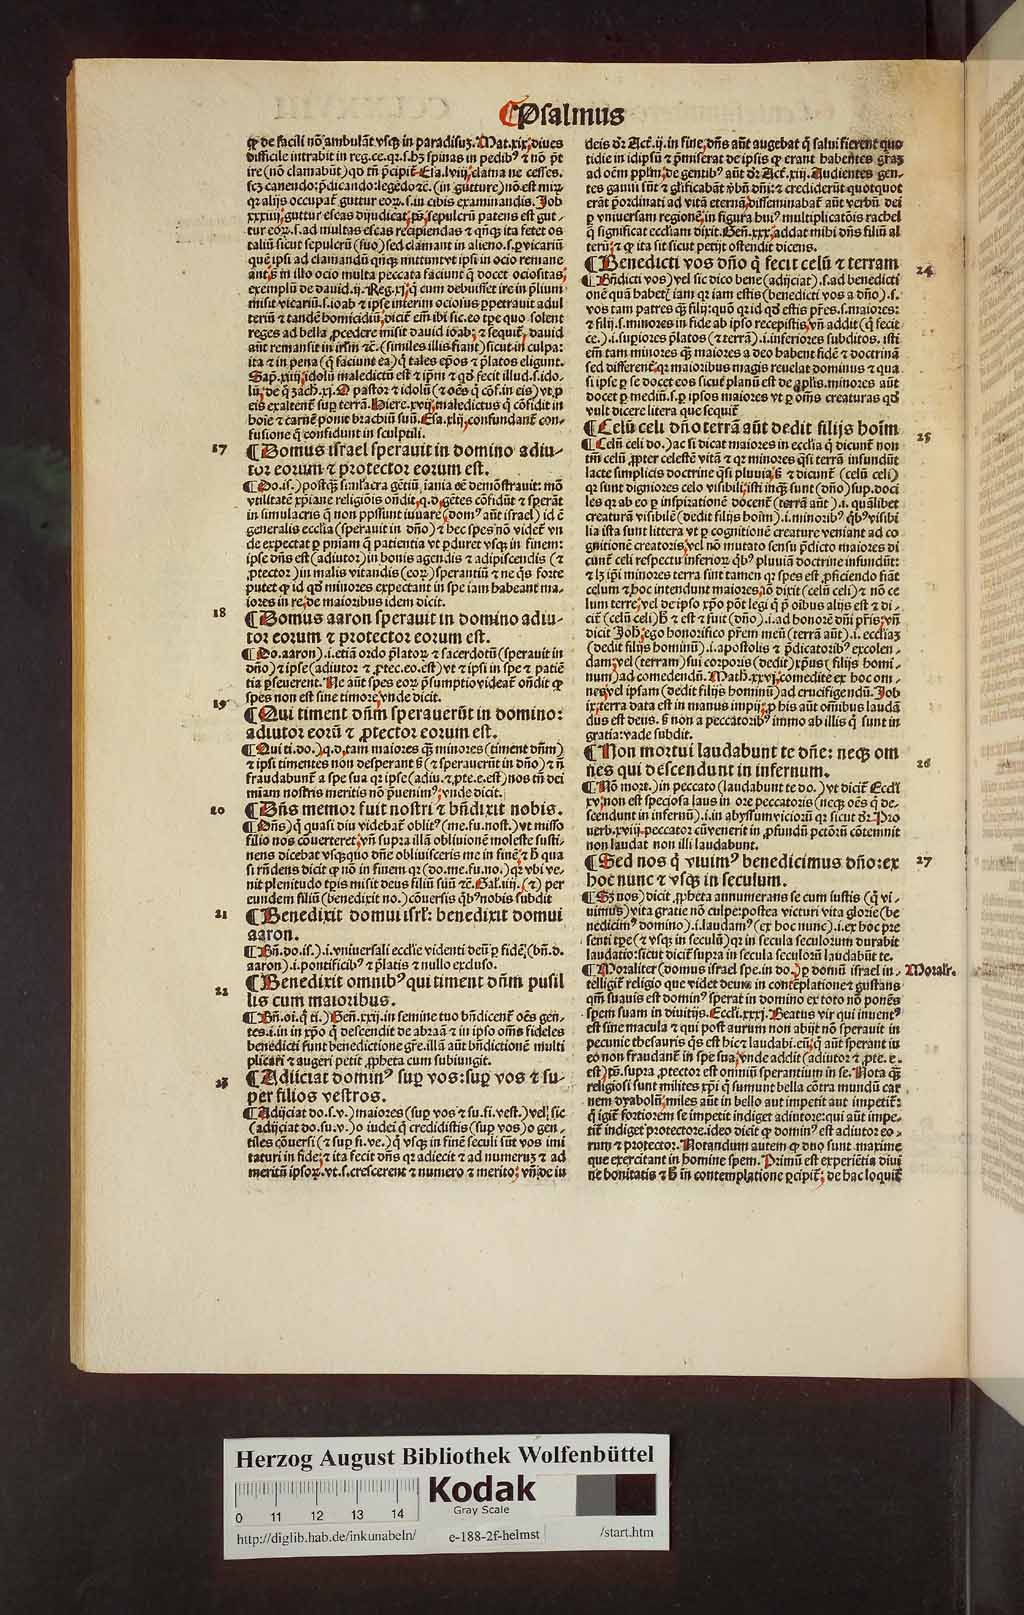 Psalmus
ꝙ de facili nō ambulāt vsq; in paradisuʒ. Mat.xix. diues
difficile intrabit in reg.ce.qꝛ.s.hʒ spinas in pedibꝰ ⁊ nō pōt
ire (nō clamabūt) qd tn̄ p̄cipit. Esa.lviij. clama ne cesses.
scʒ canendo: p̄dicando: legēdo ⁊c̄. (in gutture) nō est mirꝝ
qꝛ alijs occupat̄ guttur eoꝝ.s.in cibis examinandis. Job
xxxiiij. guttur escas dijudicat. ps̄. sepulcrū patens est gut-
tur eoꝝ.s.ad multas escas recipiendas ⁊ qn̄q; ita fetet os
taliū sicut sepulcrū (suo) sed clamant in alieno.s.ꝑ vicariū
quē ipsi ad clamandū qn̄q; mittunt vt ipsi in ocio remane
ant. s̄ in illo ocio multa peccata faciunt q̄ docet ociositas.
exemplū de dauid.ij.Reg.xj. q̄ cum debuisset ire in p̄lium
misit vicariū.s.ioab ⁊ ipse interim ociosus ꝑpetrauit adul
teriū ⁊ tandē homicidiū. dicit em̄ ibi sic. eo tꝑe quo solent
reges ad bella ꝓcedere misit dauid ioab: ⁊ sequit᷑. dauid
aūt remansit in irlm̄ ⁊c̄. (similes illis fiant) sicut in culpa:
ita ⁊ in pena (q̄ faciunt ea) q̄ tales ep̄os ⁊ p̄latos eligunt.
Sap̄.xiiij. idolū maledictū est ⁊ ip̄m ⁊ qd̄ fecit illud.s.ido-
lū. de q̄ zach̄.xj. O pastor ⁊ idolū (⁊ oēs q̄ cōf.in eis) vt ꝑ
eis exaltent̄ suꝑ terrā. Hiere.xvij. maledictus q̄ cōfidit in
hoīe ⁊ carnē ponit brachiū suū. Esa.xlij. confundant̄ con-
fusione q̄ confidunt in sculptili.
17 Domus israel sperauit in domino adiu-
tor eorum ⁊ protector eorum est.
Do.is.) postq̄ʒ simulacra gētiū inania eē demōstrauit: mō
vtilitatē xp̄iane religiōis ōndit. q.d. gētes cōfidūt ⁊ sperāt
in simulacris q̄ non pn̄t iuuare (domꝰ aūt israel) id ē
generalis ecclīa (sperauit in dn̄o) ⁊ hec spes nō videt̄ vn̄
de expectat ꝑ pn̄iam q̄ patientia vt ꝑduret vsq; in finem:
ipse dn̄s est (adiutor) in bonis agendis ⁊ adipiscendis (⁊
ꝓtector) in malis vitandis (eoꝝ) sperantiū ⁊ ne q̄s forte
putet ꝙ id qd̄ minores expectant in spe iam habeant ma-
iores in re. de maioribus idem dicit.
18 Domus aaron sperauit in domino adiu-
tor eorum ⁊ protector eorum est.
Do.aaron).i.etiā ordo p̄latoꝝ ⁊ sacerdotū (sperauit in
dn̄o) ⁊ ipse (adiutor ⁊ ꝓtec.eo.est) vt ⁊ ipsi in spe ⁊ patiē
tia ꝑseuerent. Ne aūt spes eoꝝ p̄sumptio videat̄ ōndit ꝙ
spes non est sine timore. vnde dicit.
19 Qui timent dn̄m sperauerūt in domino:
adiutor eorū ⁊ ꝓtector eorum est.
Qui ti.do.).q.d. tam maiores q̄ʒ minores (timent dn̄m)
⁊ ipsi timentes non desperant s̄ (⁊ sperauerūt in dn̄o) ⁊ n̄
fraudabunt̄ a spe sua qꝛ ipse (adiu.⁊ ꝓte.e.est) nos tn̄ dei
mīam nostris meritis nō p̄uenimꝰ. vnde dicit.
20 Dn̄s memor fuit nostri ⁊ bn̄dixit nobis.
Dn̄s) q̄ quasi diu videbat̄ oblitꝰ (me.fu.nost.) vt misso
filio nos cōuerteret. vn̄ supra illā obliuionē moleste susti-
nens dicebat vsq̄quo dn̄e obliuisceris me in finē. ⁊ h̄ qua
si rn̄dens dicit ꝙ nō in finem qꝛ (do.me.fu.no.) qꝛ vbi ve-
nit plenitudo tꝑis misit deus filiū suū ⁊c̄. Gal̄.iiij. (⁊) per
eundem filiū (benedixit no.) cōuersis q̄bꝰ nobis subdit
21 Benedixit domui isrl̄: benedixit domui
aaron.
Bn̄.do.is.).i.vniuersali ecclīe videnti deū ꝑ fidē. (bn̄.d.
aaron).i.pontificibꝰ ⁊ p̄latis ⁊ nullo excluso.
22 Benedixit omnibꝰ qui timent dn̄m pusil
lis cum maioribus.
Bn̄.oī.q̄ ti.) Gen̄.xxij. in semine tuo bn̄dicent̄ oēs gen-
tes.i.in in xp̄o q̄ descendit de abraā ⁊ in ipso om̄s fideles
benedicti sunt benedictione gr̄e. illā aūt bn̄dictionē multi
plicari ⁊ augeri petit ꝓpheta cum subiungit.
23 Adijciat dominꝰ suꝑ vos: suꝑ vos ⁊ su-
per filios vestros.
Adijciat do.s.v.) maiores (suꝑ vos ⁊ su.fi.vest.) vel sic
(adijciat do.su.v.) o iudei q̄ credidistis (suꝑ vos) o gen-
tiles cōuersi (⁊ suꝑ fi.ve.) q̄ vsq; in finē seculi sūt vos imi
taturi in fide. ⁊ ita fecit dn̄s qꝛ adiecit ⁊ ad numerūʒ ⁊ ad
meritū ipsoꝝ.vt.s.crescerent ⁊ numero ⁊ merito. vn̄ de iu
deis dr̄ Act̄.ij. in fine. dn̄s aūt augebat q̄ salui fierent quo
tidie in idipsū ⁊ p̄miserat de ipsis ꝙ erant habentes gr̄aʒ
ad oēm pp̄lm̄. de gentibꝰ aūt dr̄ Act̄.xiij. Audientes gen-
tes gauisi sūt ⁊ glīficabāt vbū dn̄i: ⁊ crediderūt quotquot
erāt p̄ordinati ad vitā eternā. disseminabat̄ aūt verbū dei
ꝑ vniuersam regionē. in figura huiꝰ multiplicatōis rachel
q̄ significat eccliam dixit. Gen̄.xxx. addat mihi dn̄s filiū al
terū. ⁊ ꝙ ita sit sicut petijt ostendit dicens.
24 Benedicti vos dn̄o q̄ fecit celū ⁊ terram
Bn̄dicti vos) vel sic dico bene (adijciat).s.ad benedicti
onē quā habet̄. iam qꝛ iam estis (benedicti vos a dn̄o).s.
vos tam patres q̄ʒ filij: quō qꝛ id qd̄ estis p̄res.s.maiores:
⁊ filij.s.minores in fide ab ipso recepistis. vn̄ addit (q̄ fecit
ce.).i.supiores p̄latos (⁊ terrā).i.inferiores subditos. isti
em̄ tam minores q̄ʒ maiores a deo habent fidē ⁊ doctrinā
sed different̄. qꝛ maioribus magis reuelat dominus ⁊ qua
si ipse ꝑ se docet eos sicut planū est de ap̄lis. minores aūt
docet ꝑ mediū.s.ꝑ ipsos maiores vt ꝑ om̄s creaturas qd̄
vult dicere litera que sequit̄
25 Celū celi dn̄o terrā aūt dedit filijs hoīm
Celū celi do.) ac si dicat maiores in ecclīa q̄ dicunt̄ non
tm̄ celū ꝓpter celestē vitā ⁊ qꝛ minores q̄si terrā infundūt
lacte simplicis doctrine q̄si pluuia. s̄ ⁊ dicunt̄ (celū celi)
qꝛ sunt digniores celo visibili. isti inq̄ʒ sunt (dn̄o) sup.doci
les qꝛ ab eo ꝑ inspirationē docent̄ (terrā aūt).i.quālibet
creaturā visibilē (dedit filijs hoīm).i.minoribꝰ q̄bꝰ visibi
lia ista sunt littera vt ꝑ cognitionē creature veniant ad co
gnitionē creatoris. vel nō mutato sensu p̄dicto maiores di
cunt̄ celi respectu inferioꝝ q̄bꝰ pluuiā doctrine infundūt:
⁊ lʒ ip̄i minores terra sunt tamen qꝛ spes est ꝓficiendo fiāt
celum ⁊ hoc intendunt maiores. iō dixit (celū celi) ⁊ nō ce
lum terre. vel de ipso xp̄o pōt legi q̄ p̄ oībus alijs est ⁊ di-
cit̄ (celū celi) h̄ ⁊ est ⁊ fuit (dn̄o).i.ad honorē dn̄i p̄ris. vn̄
dicit Joh̄. ego honorifico p̄rem meū (terrā aūt).i.eccliaʒ
(dedit filijs hominū).i.apostolis ⁊ p̄dicatoribꝰ excolen-
dam. vel (terram) sui corporis (dedit) xp̄us (filijs homi-
num) ad comedendū. Math̄.xxvj. comedite ex hoc om-
nes. vel ipsam (dedit filijs hominū) ad crucifigendū. Job
ix. terra data est in manus impij. ꝓ his aūt om̄ibus laudā
dus est deus. s̄ non a peccatoribꝰ immo ab illis q̄ sunt in
gratia: vnde subdit.
26 Non mortui laudabunt te dn̄e: neq; om
nes qui descendunt in infernum.
Nō mort.) in peccato (laudabunt te do.) vt dicit̄ Eccl̄i
xv. non est speciosa laus in ore peccatoris (neq; oēs q̄ de-
scendunt in infernū).i.in abyssum vicioꝝ qꝛ sicut dr̄ Pro
uerb̄.xviij. peccator cū venerit in ꝓfundū petōrū cōtemnit
non laudat non illi laudabunt.
27 Sed nos q̄ viuimꝰ benedicimus dn̄o: ex
hoc nunc ⁊ vsq; in seculum.
Sʒ nos) dicit ꝓpheta annumerans se cum iustis (q̄ vi-
uimus) vita gratie nō culpe: postea victuri vita glorie (be
nedicimꝰ domino).i.laudamꝰ (ex hoc nunc).i.ex hoc pre
senti tꝑe (⁊ vsq; in seculū) qꝛ in secula seculorum durabit
laudatio: sicut dicit̄ supra in secula seculorū laudabūt te.
Moralr̄.
Moraliter (domus israel spe.in do.) ꝑ domū israel in-
telligit̄ religio que videt deum in contēplatione ⁊ gustans
qm̄ suauis est dominꝰ sperat in domino ex toto nō ponēs
spem suam in diuitijs. Eccl̄i.xxxj. Beatus vir qui inuentꝰ
est sine macula ⁊ qui post aurum non abijt nō sperauit in
pecunie thesauris q̄s est hic ⁊ laudabi.eū. q̄ aūt sperant iu
eo non fraudant̄ in spe sua. vnde addit (adiutor ⁊ ꝓte.e.
est) ps̄. supra ꝓtector est omniū sperantium in se. Nota q̄ʒ
religiosi sunt milites xp̄i q̄ sumunt bella cōtra mundū car
nem dyabolū. miles aūt in bello aut impetit aut impetit̄:
q̄ igit̄ fortiorem se impetit indiget adiutore: qui aūt impe-
tit̄ indiget protectore. ideo dicit ꝙ dominꝰ est adiutor eo-
rum ⁊ protector. Notandum autem ꝙ duo sunt maxime
que exercitant in homine spem. Primū est experiētia diui
ne bonitatis ⁊ h̄ in contemplatione ꝑcipit̄. de hac loquit̄
Herzog August Bibliothek Wolfenbüttel
0 11 12 13 14
Kodak
Gray Scale
http://diglib.hab.de/inkunabeln/ e-188-2f-helmst /start.htm